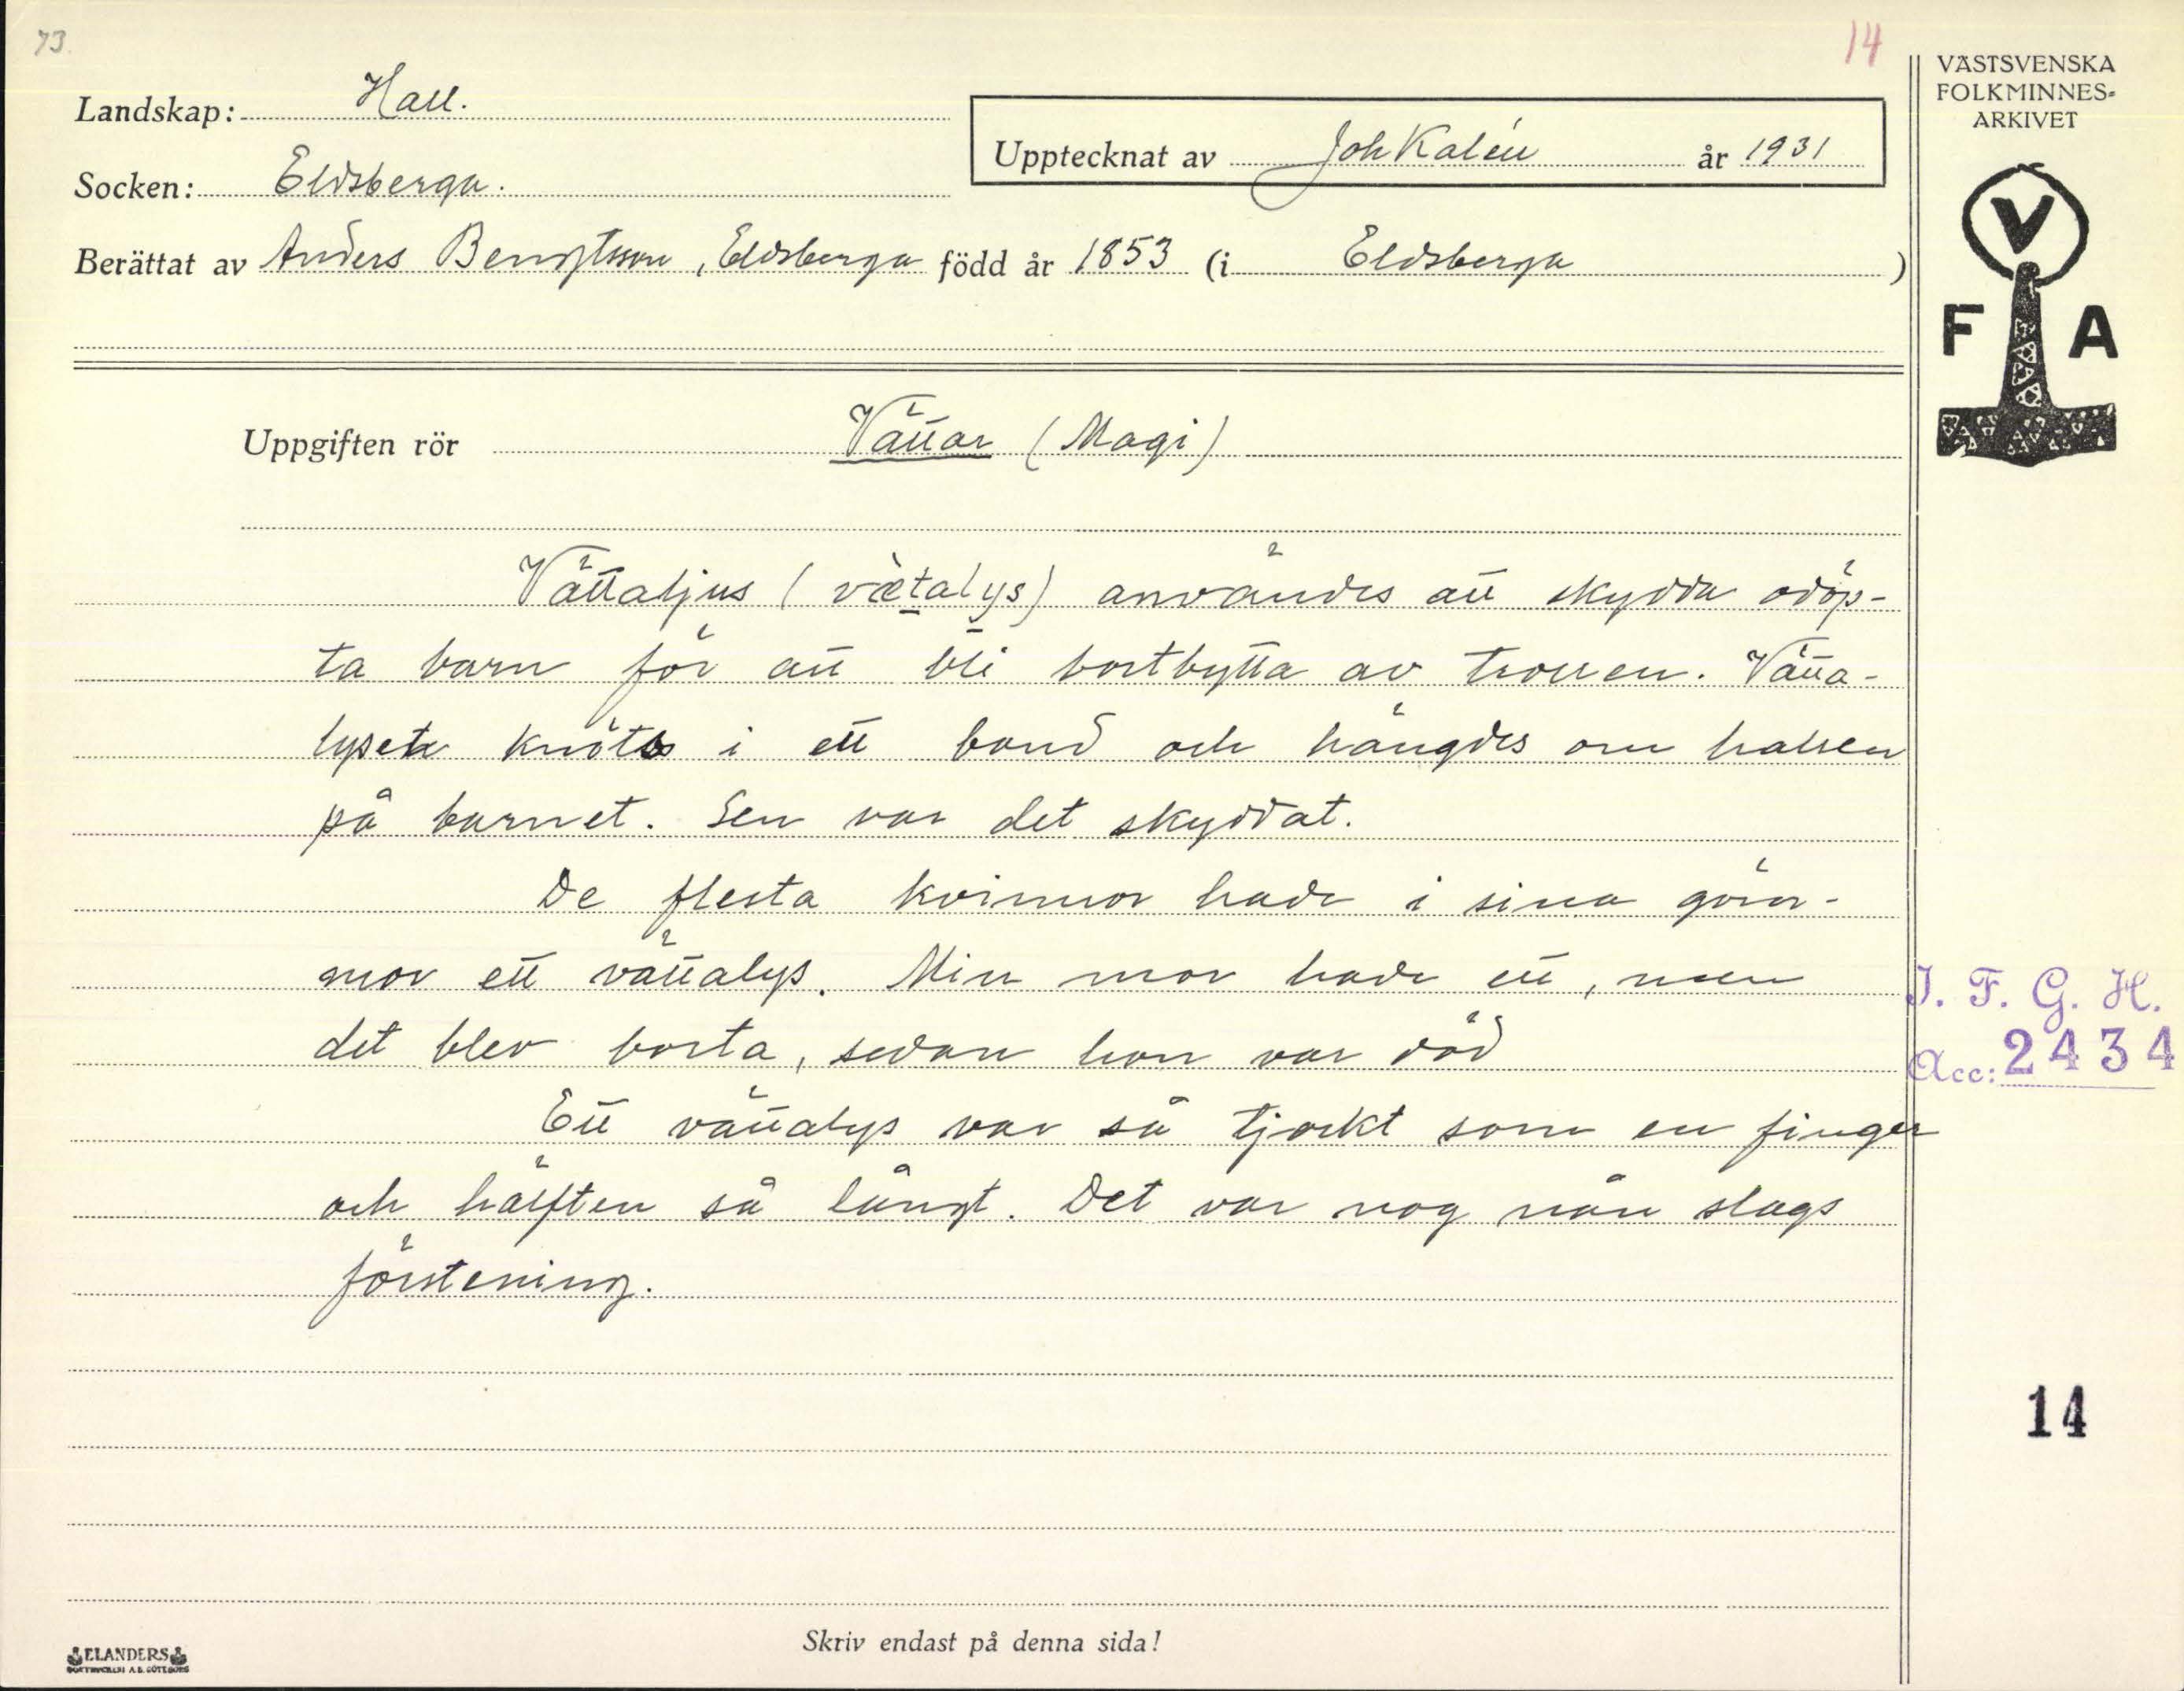 73.
14
VÄSTSVENSKA
FOLKMINNES-
ARKIVET
Landskap: Hall.
Upptecknat av Joh Kalén år 1931
Socken: Eldsberga.
Berättat av Anders Bengtsson, Eldsberga född år 1853 (i Eldsberga)
V
F A
Uppgiften rör Vättar (Magi)
Vättaljus (vætalys) användes att skydda odöp-
ta barn för att bli bortbytta av trollen. Vätta-
lyset knöts i ett band och hängdes om halsen
på barnet. Sen var det skyddat.
De flesta kvinnor hade i sina göm-
mor ett vättalys. Min mor hade ett, men
det blev borta, sedan hon var död
Ett vättalys var så tjockt som en finger
och hälften så långt. Det var nog nån slags
förstening.
I. F. G. H.
Acc: 2434
14
Skriv endast på denna sida!
ELANDERS
BOKTRYCKERI A.B. GÖTEBORG